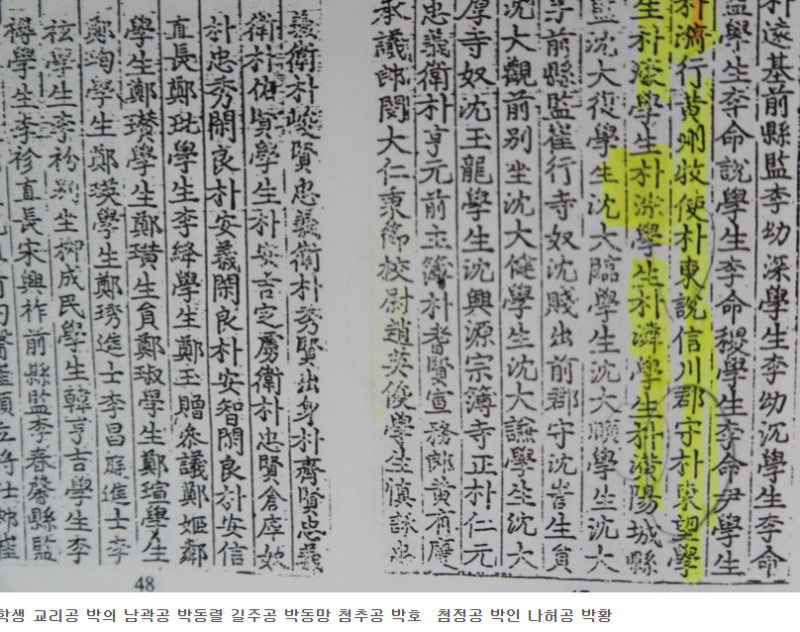 遠基前縣監李幼深學生李幼沉學生李命
監學生李命說學生李命稷學生李命尹學生
朴濟行黃州牧使朴東說信川郡守朴東望學
生朴學生朴學生朴濟學生朴潢陽城縣
監沈大復學生沈大臨學生沈大曦學生沈大
前縣監崔行寺奴沈賤出前郡守沈生員
沈大觀前別坐沈大健學生沈大學生沈大
厚寺奴沈玉龍學生沈興源宗簿寺正朴仁元
忠義衛朴亨元前主簿朴耆賢宣務郎黃有慶
承議郎閔大仁秉節校尉趙英俊學生愼詠忠
義衛朴峻賢忠義衛朴秀賢出身朴齊賢忠義
衛朴佑賢學生朴安吉定虜衛朴忠賢倉庫奴
朴忠秀閑良朴安義閑良朴安智閑良朴安信
直長鄭玭學生李絳學生鄭玉贈參議鄭姬鄰
學生鄭瓚學生鄭璜生員鄭琡學生鄭瑄學生
鄭珣學生鄭瑛學生鄭琇進士李昌庭進士李
學生李別坐柳成民學生韓亨吉學生李
學生李袗直長宋興祚前縣監李春馨縣監
48
학생 교리공 박의 남곽공 박동렬 길주공 박동망 첨추공 박호 첨정공 박인 나허공 박황